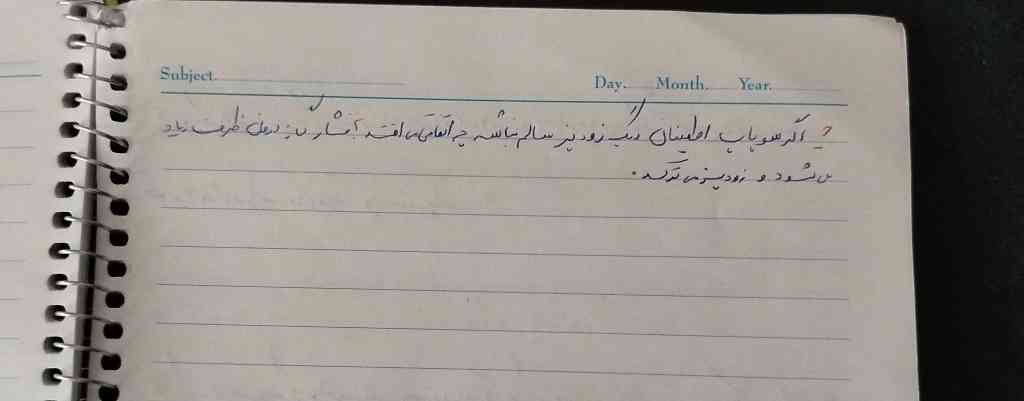 Subject. Day. Month. Year.
؟ اگر سوپاپ اطمینان دیگ زودپز سالم نباشد چه اتفاقی می افتد؟ فشار گاز درون ظرف زیاد
می شود و زودپز می ترکد.